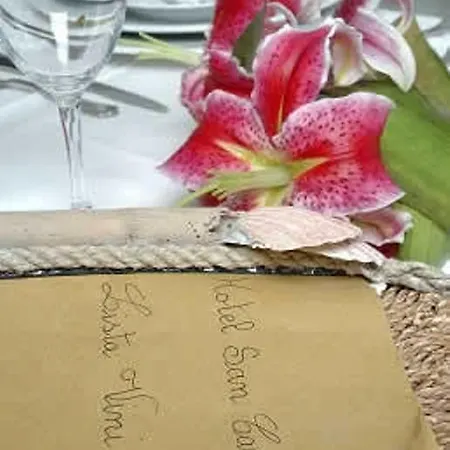 Hotel San
Lista Vini